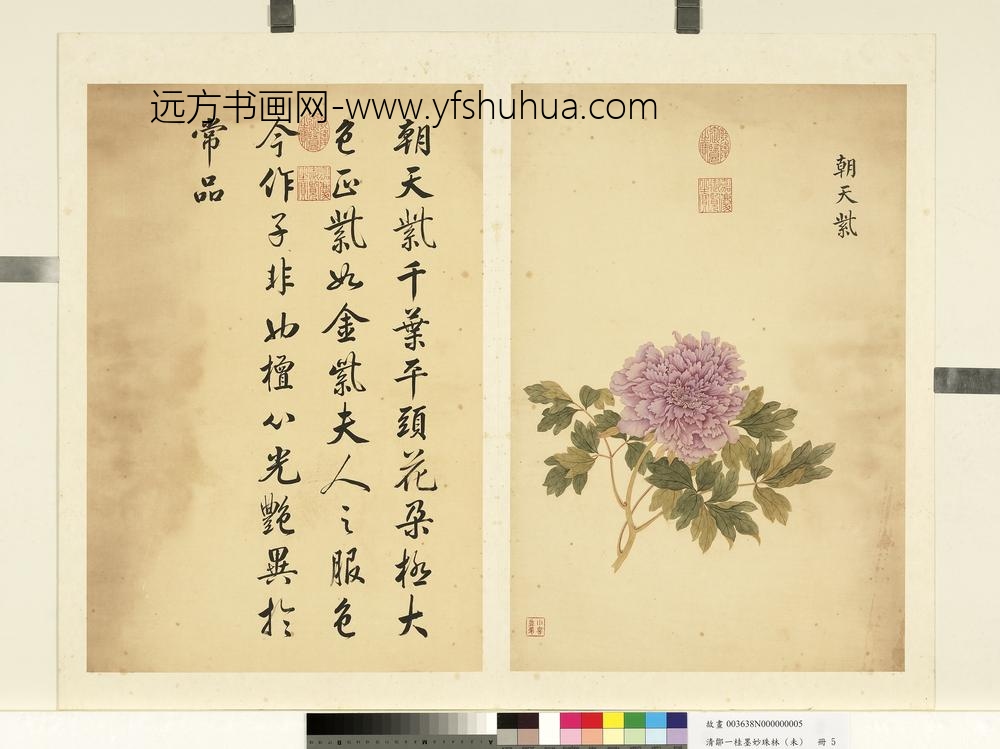 远方书画网-www.yfshuhua.com
朝天紫
朝天紫千葉平頭花朶極大
色正紫如金紫夫人之服色
今作子非也檀心光艷異於
常品
故畫 003638N000000005
清鄒一桂墨妙珠林（未） 冊 5